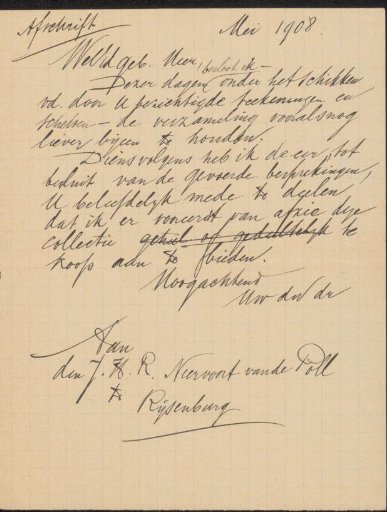 Afschrift
Mei 1908.
WelEdgeb. Heer,
besloot ik –
Dezer dagen onder het schikken
vd. door U bezichtigde teekeningen en
schetsen – de verzameling vooralsnog
liever bijeen te houden.
Diensvolgens heb ik de eer, tot
besluit van de gevoerde besprekingen,
U beleefdelijk mede te deelen
dat ik er voorerst van afzie die
collectie geheel of gedeeltelijk te
koop aan te bieden.
Hoogachtend
Uw dw dr
Aan
den J. H. R. Niervoort van de Poll
te
Rijsenburg